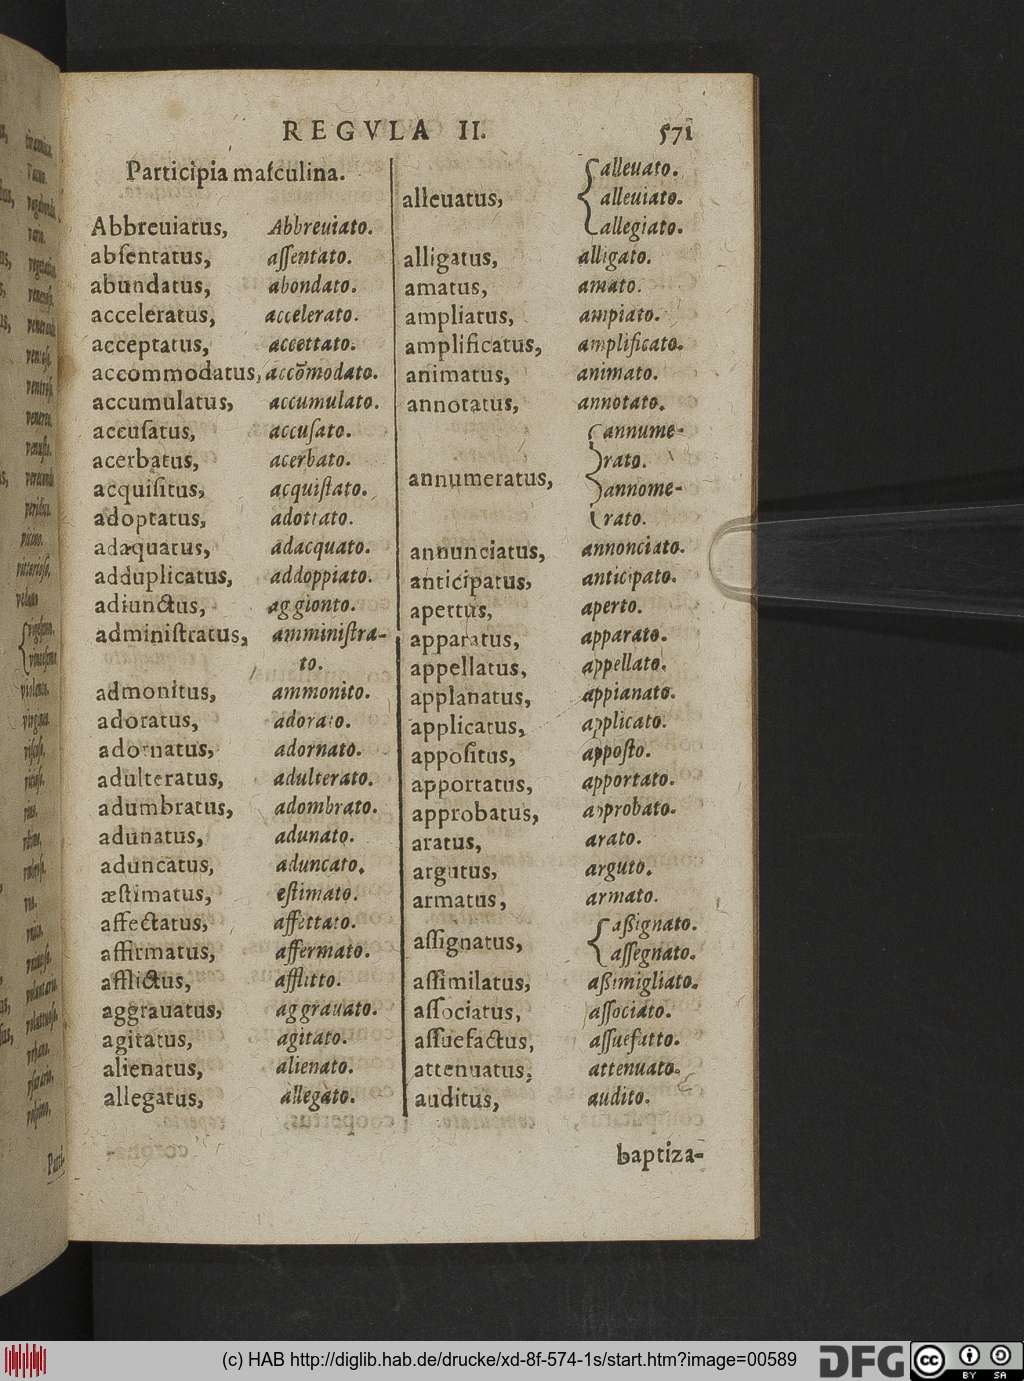 REGVLA II. 571
Participia maſculina.
Abbreuiatus, Abbreuiato.
abſentatus, aſſentato.
abundatus, abondato.
acceleratus, accelerato.
acceptatus, accettato.
accommodatus, accõmodato.
accumulatus, accumulato.
accuſatus, accuſato.
acerbatus, acerbato.
acquiſitus, acquiſtato.
adoptatus, adottato.
adæquatus, adacquato.
adduplicatus, addoppiato.
adiunctus, aggionto.
adminiſtratus, amminiſtra-
to.
admonitus, ammonito.
adoratus, adorato.
adornatus, adornato.
adulteratus, adulterato.
adumbratus, adombrato.
adunatus, adunato.
aduncatus, aduncato.
æſtimatus, eſtimato.
affectatus, affettato.
affirmatus, affermato.
afflictus, afflitto.
aggrauatus, aggrauato.
agitatus, agitato.
alienatus, alienato.
allegatus, allegato.
alleuato.
alleuatus, alleuiato.
allegiato.
alligatus, alligato.
amatus, amato.
ampliatus, ampiato.
amplificatus, amplificato.
animatus, animato.
annotatus, annotato.
annume-
rato.
annumeratus,
annome-
rato.
annunciatus, annonciato.
anticipatus, anticipato.
apertus, aperto.
apparatus, apparato.
appellatus, appellato.
applanatus, appianato.
applicatus, applicato.
appoſitus, appoſto.
apportatus, apportato.
approbatus, approbato.
aratus, arato.
argutus, arguto.
armatus, armato.
aßignato.
aſſignatus,
aſſegnato.
aſſimilatus, aßimigliato.
aſſociatus, aſſociato.
aſſuefactus, aſſuefatto.
attenuatus, attenuato.
auditus, audito.
baptiza-
(c) HAB http://diglib.hab.de/drucke/xd-8f-574-1s/start.htm?image=00589
DFG
cc BY SA